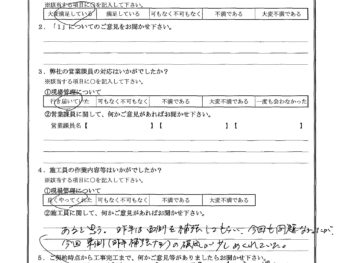 ※該当する項目に○を記入して下さい。
大変満足している 満足している 可もなく不可もなく 不満である 大変不満である
2．「1」についてのご意見をお聞かせ下さい。
3．弊社の営業課員の対応はいかがでしたか？
※該当する項目に○を記入して下さい。
①現場管理について
行き届いていた 可もなく不可もなく 不満である 大変不満である 一度も会わなかった
②営業課員に関して、何かご意見があればお聞かせ下さい。
営業課員名【 】【 】【 】
4．施工員の作業内容等はいかがでしたか？
※該当する項目に○を記入して下さい。
①現場管理について
良くやってくれた 可もなく不可もなく 不満である 大変不満である
②施工員に関して、何かご意見があればお聞かせ下さい。
今回
5．ご契約時点から工事完工まで、何かご意見等がありましたらお聞かせ下さい。